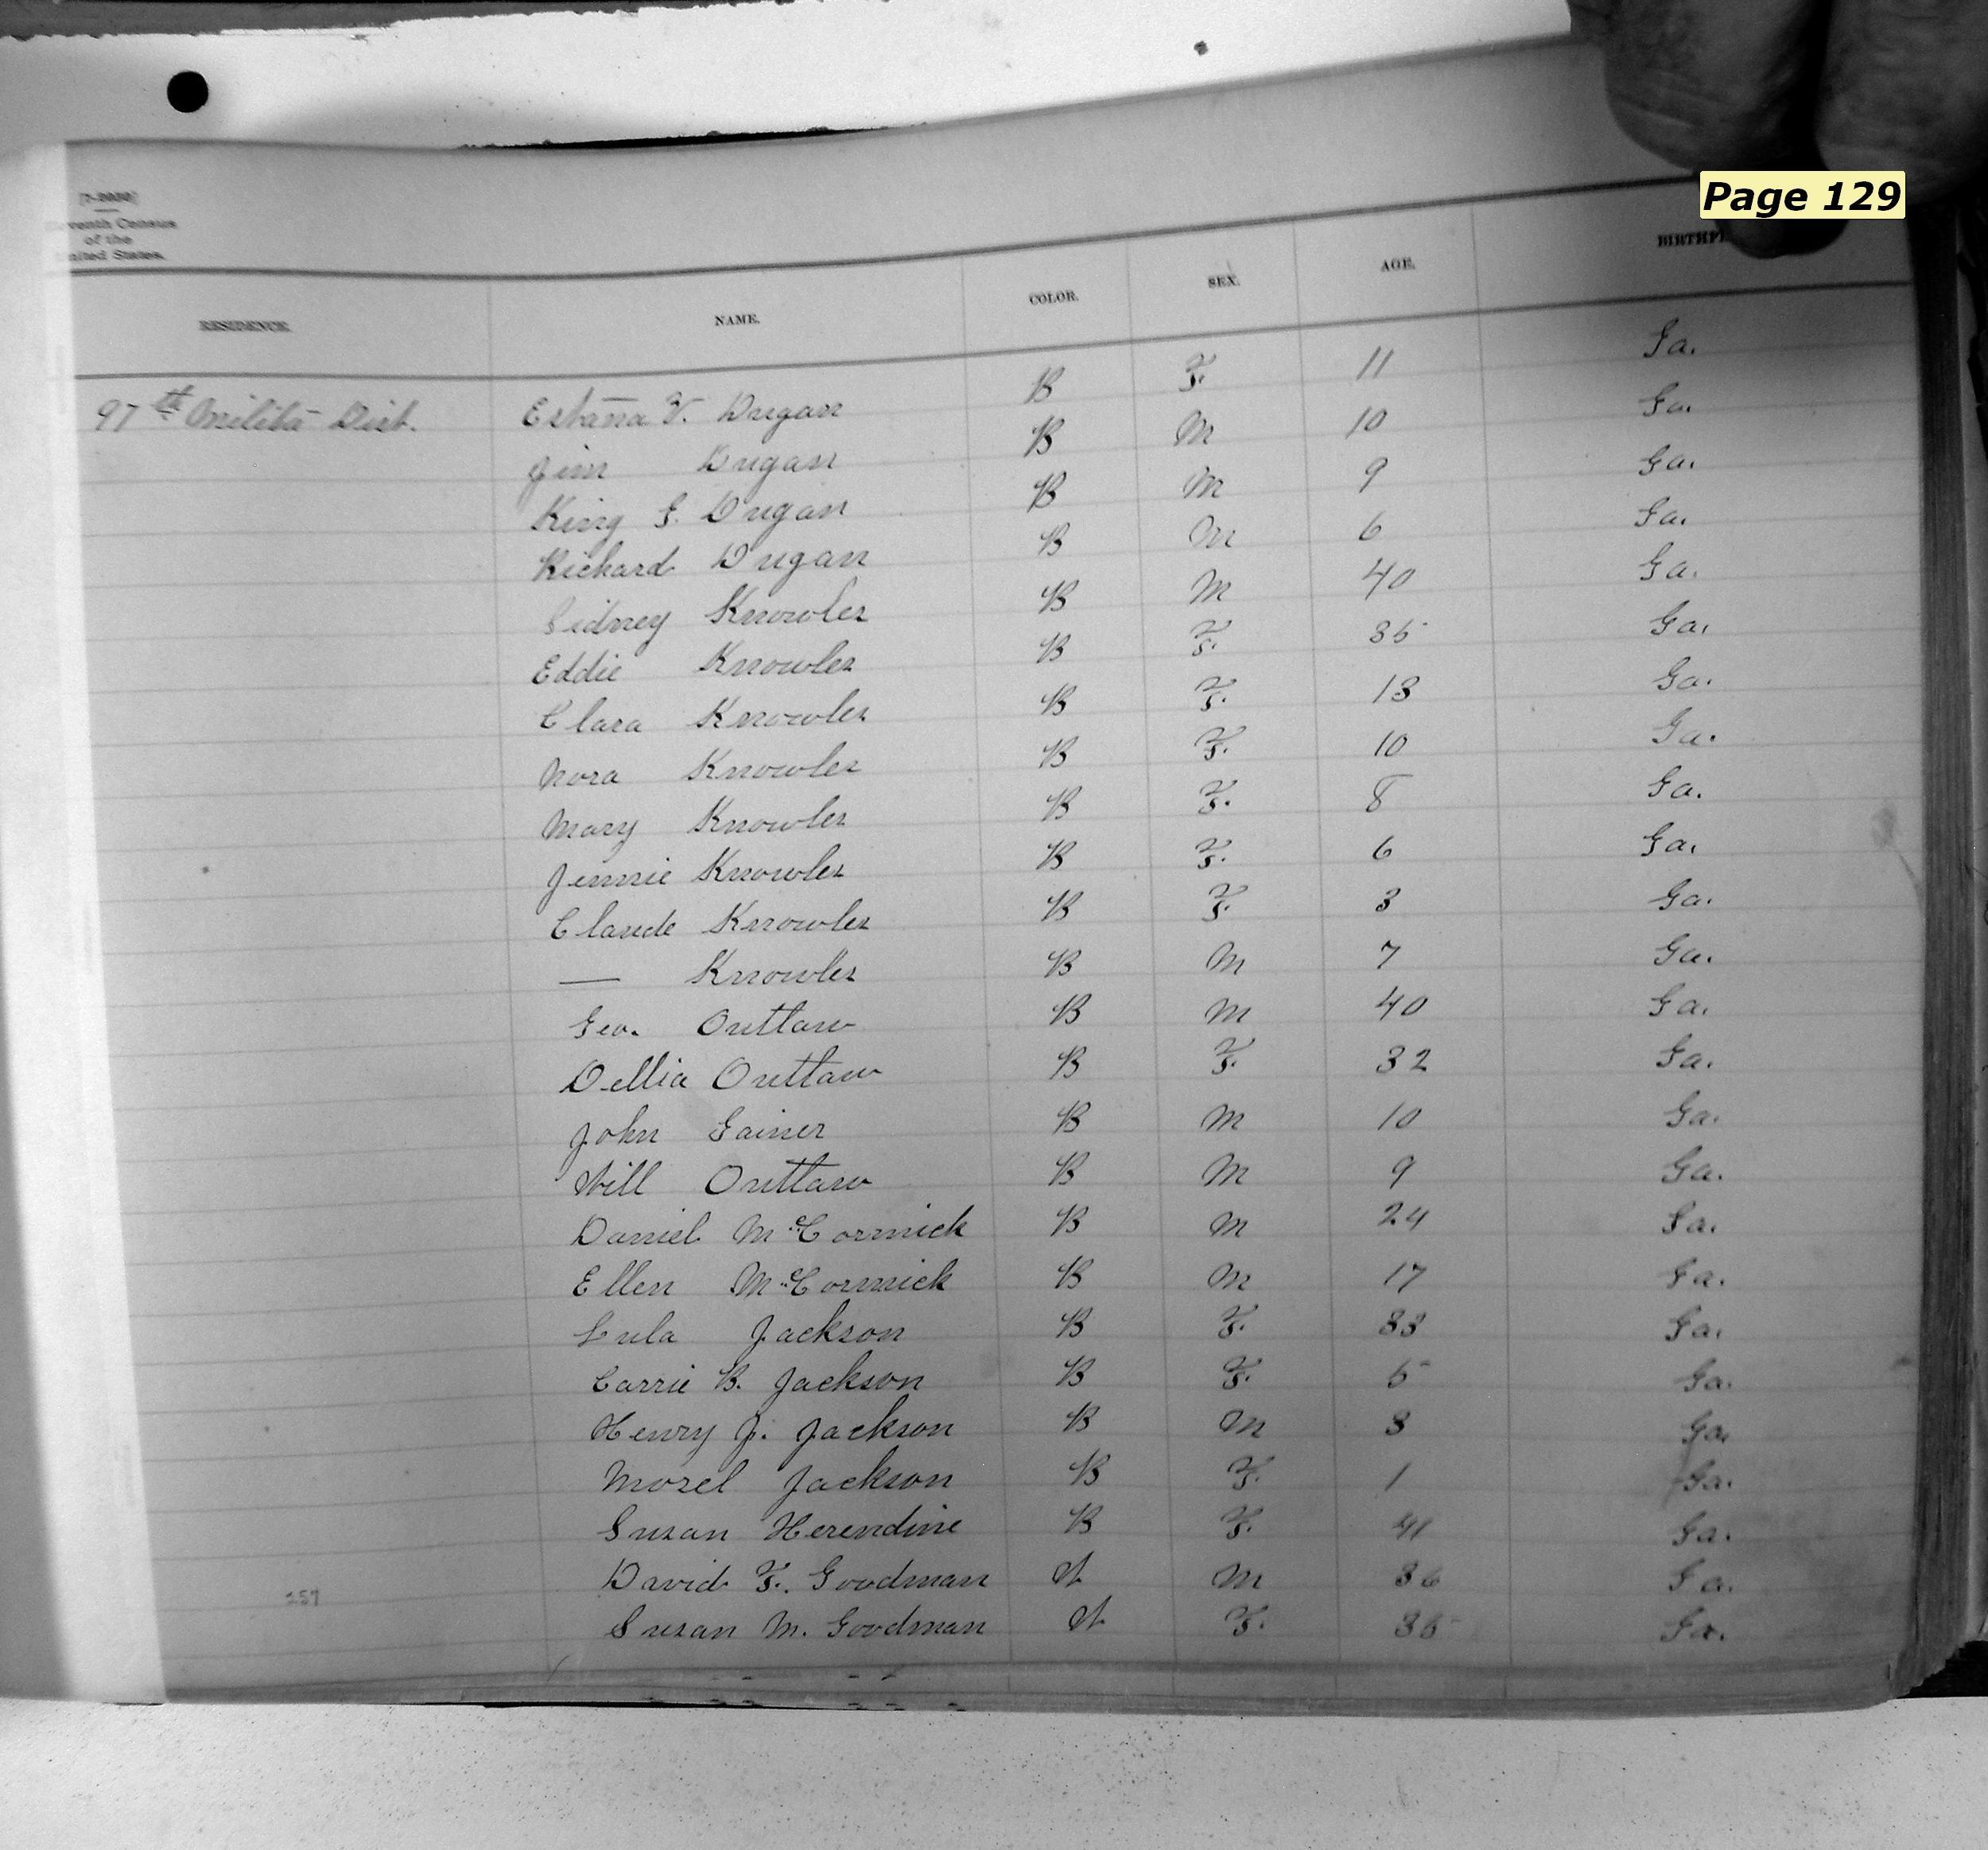 Page 129
[7-2030]
eventh Census
of the
nited States.
RESIDENCE. NAME. COLOR. SEX. AGE. BIRTHPL
97th Militia Dist. Estana V. Dugan B F. 11 Ga.
Jim Dugan B M 10 Ga.
King G. Dugan B M 9 Ga.
Richard Dugan B M 6 Ga.
Sidney Knowles B M 40 Ga.
Eddie Knowles B F. 35 Ga.
Clara Knowles B F. 13 Ga.
Nora Knowles B F. 10 Ga.
Mary Knowles B F. 8 Ga.
Jennie Knowles B F. 6 Ga.
Claude Knowles B F. 3 Ga.
— Knowles B M 7 Ga.
Geo. Outlaw B M 40 Ga.
Dellia Outlaw B F. 32 Ga.
John Gainer B M 10 Ga.
Will Outlaw B M 9 Ga.
Daniel McCormick B M 24 Ga.
Ellen McCormick B M 17 Ga.
Lula Jackson B F. 33 Ga.
Carrie B. Jackson B F. 5 Ga.
Henry J. Jackson B M 3 Ga.
Mozel Jackson B F. 1 Ga.
Susan Herendine B F. 41 Ga.
David F. Goodman M 36 Ga.
Susan M. Goodman F. 35 Ga.
257